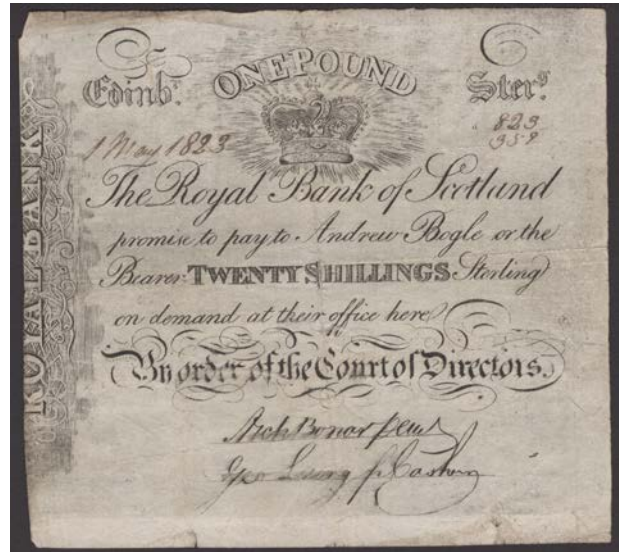 ONE POUND
Edinbʳ. Sterᵍ.
1 May 1823 823
The Royal Bank of Scotland
promise to pay to Andrew Bogle or the
Bearer TWENTY SHILLINGS Sterling
on demand at their office here
By order of the Court of Directors.
Arch Bonar
Geo
ROYAL BANK